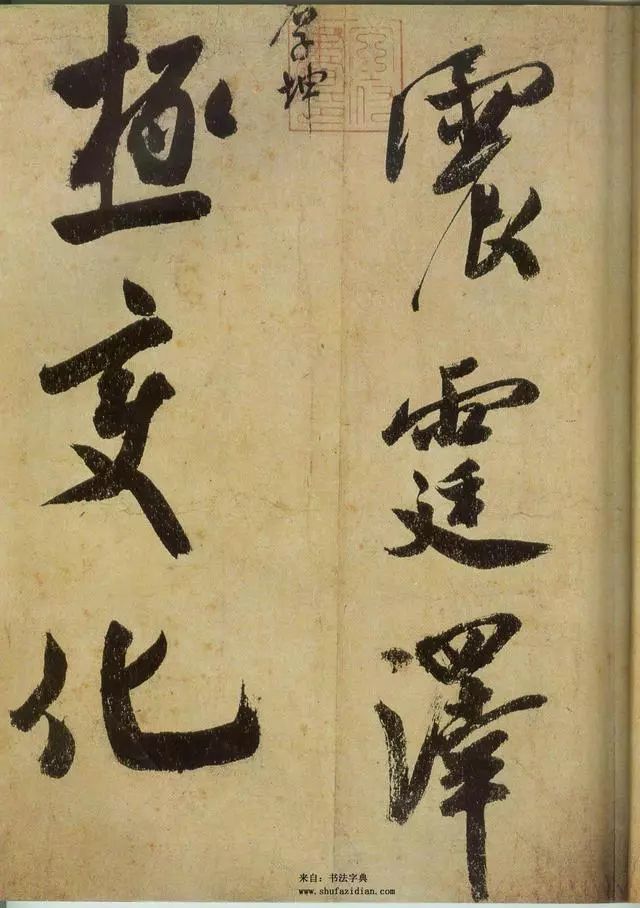 震霆澤
厚坤
極变化
来自：书法字典
www.shufazidian.com